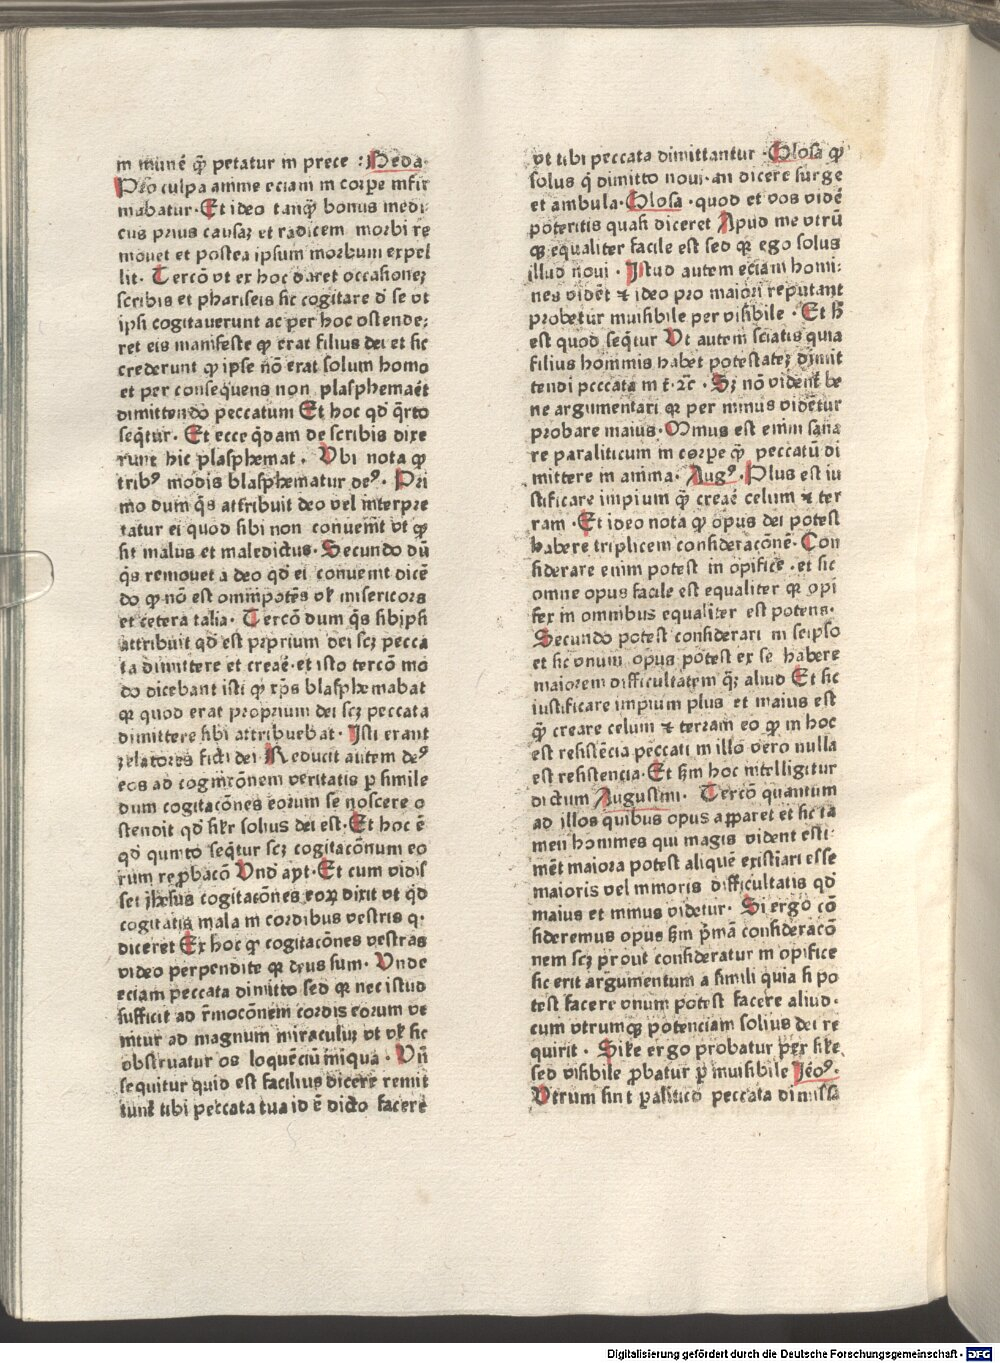 in munē qͣ petatur in prece : Beda·
Pro culpa anime eciam in corpe infir
mabatur· Et ideo tanqͣ bonus medi
cus prius causaꝫ et radicem morbi re
mouet et postea ipsum morbum expel
lit· Tercō vt ex hoc daret occasioneꝫ
scribis et phariseis sic cogitare d̄ se vt
ipsi cogitauerunt ac per hoc ostende:
ret eis manifeste ꝙ erat filius dei et sic
crederent ꝙ ipse nō erat solum homo
et per conseq̄ens non plasphemaēt
dimittendo peccatum Et hoc qd̄ q̄rto
seq̄tur· Et ecce q̄dam de scribis dixe
runt hic plasphemat· Vbi nota ꝙ
tribꝰ modis blasphematur deꝰ· Pri
mo dum q̄s attribuit deo vel interpre
tatur ei quod sibi non conuenit vt ꝙ
sit malus et maledictus· Secundo dū
q̄s remouet a deo qd̄ ei conuenit dicē
do ꝙ nō est omnipotēs vł misericors
et cetera talia· Tercō dum q̄s sibipsi
attribuit qd̄ est proprium dei scꝫ pecca
ta dimittere et creaē·et isto tercō mo
do dicebant isti ꝙ xp̄s blasphemabat
qꝛ quod erat proprium dei scꝫ peccata
dimittere sibi attribuebat· Isti erant
zelatores ficti dei Reducit autem deꝰ
eos ad cognicōnem veritatis ꝑ simile
dum cogitacōnes eorum se noscere o
stendit qd̄ sił̄r solius dei est· Et hoc ē
qd̄ quinto seq̄tur scꝫ cogitacōnum eo
rum reꝓbacō Vnd̄ apt· Et cum vidis
set jhesus cogitacōnes eoꝝ dixit vt qd̄
cogitatis mala in cordibus vestris q·
diceret Ex hoc ꝙ cogitacōnes vestras
video perpendite qꝛ deus sum· Vnde
eciam peccata dimitto sed qꝛ nec istud
sufficit ad r̄mocōnem cordis eorum ve
nitur ad magnum miraculuꝫ vt vł sic
obstruatur os loquēciū iniqua· Vn̄
sequitur quid est facilius dicere remit
tunt̄ tibi peccata tua id ē dicto facere
vt tibi peccata dimittantur· Glosa ꝙ
solus q̄ dimitto noui·an dicere surge
et ambula· Glosa ·quod et vos vidē
poteritis quasi diceret Apud me vtrū
qꝫ equaliter facile est sed qꝛ ego solus
illud noui· Istud autem eciam homi:
nes vidēt ⁊ ideo pro maiori reputant
probetur inuisibile per visibile· Et h̄
est quod seq̄tur Vt autem sciatis quia
filius hominis habet potestateꝫ dimit
tendi peccata in t̄·⁊c̄· Sꝫ nō videnť be
ne argumentari qꝛ per minus vidētur
probare maius· Minus est enim sana
re paraliticum in corpe qͣ peccatū di
mittere in anima· Augꝰ· Plus est iu
stificare impium qͣ creaē celum ⁊ ter
ram· Et ideo nota ꝙ opus dei potest
habere triplicem consideracōnē· Con
siderare enim potest in opifice·et sic
omne opus facile est equaliter qꝛ opi
fex in omnibus equaliter est potens·
Secundo potest considerari in seipso
et sic vnum opus potest ex se habere
maiorem difficultatem q̄ꝫ aliud Et sic
iustificare impium plus et maius est
qͣ creare celum ⁊ terram eo ꝙ in hoc
est resistēcia peccati in illo vero nulla
est resistencia· Et sm̄ hoc intelligitur
dictum Augustini· Tercō quantum
ad illos quibus opus apparet et sic ta
men homines qui magis vident esti·
mēt maiora potest aliquē existīari esse
maioris vel minoris difficultatis qd̄
maius et minus videtur· Si ergo cō
sideremus opus sm̄ p̄mā consideracō
nem scꝫ prout consideratur in opifice
sic erit argumentum a simili quia si po
test facere vnum potest facere aliud·
cum vtrumqꝫ potenciam solius dei re
quirit· Siłe ergo probatur per siłe
sed visibile ꝓbatur ꝑ inuisibile Jeōꝰ·
Vtrum sint paralitico peccata dimissa
Digitalisierung gefördert durch die Deutsche Forschungsgemeinschaft - DFG